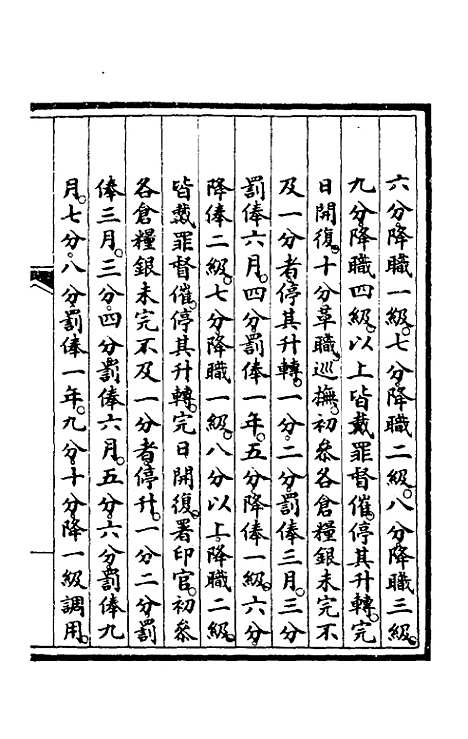 六分。降職一級。七分。降職二級。八分。降職三級。
九分。降職四級。以上皆戴罪督催。停其升轉。完
日開復。十分革職。巡撫。初參各倉糧銀未完不
及一分者。停其升轉。一分。二分。罰俸三月。三分
罰俸六月。四分。罰俸一年。五分。降俸一級。六分。
降俸二級。七分。降職一級。八分以上。降職二級。
皆戴罪督催。停其升轉。完日開復。署印官。初參
各倉糧銀未完不及一分者。停升。一分二分。罰
俸三月。三分。四分。罰俸六月。五分。六分。罰俸九
月。七分。八分。罰俸一年。九分。十分。降一級調用。